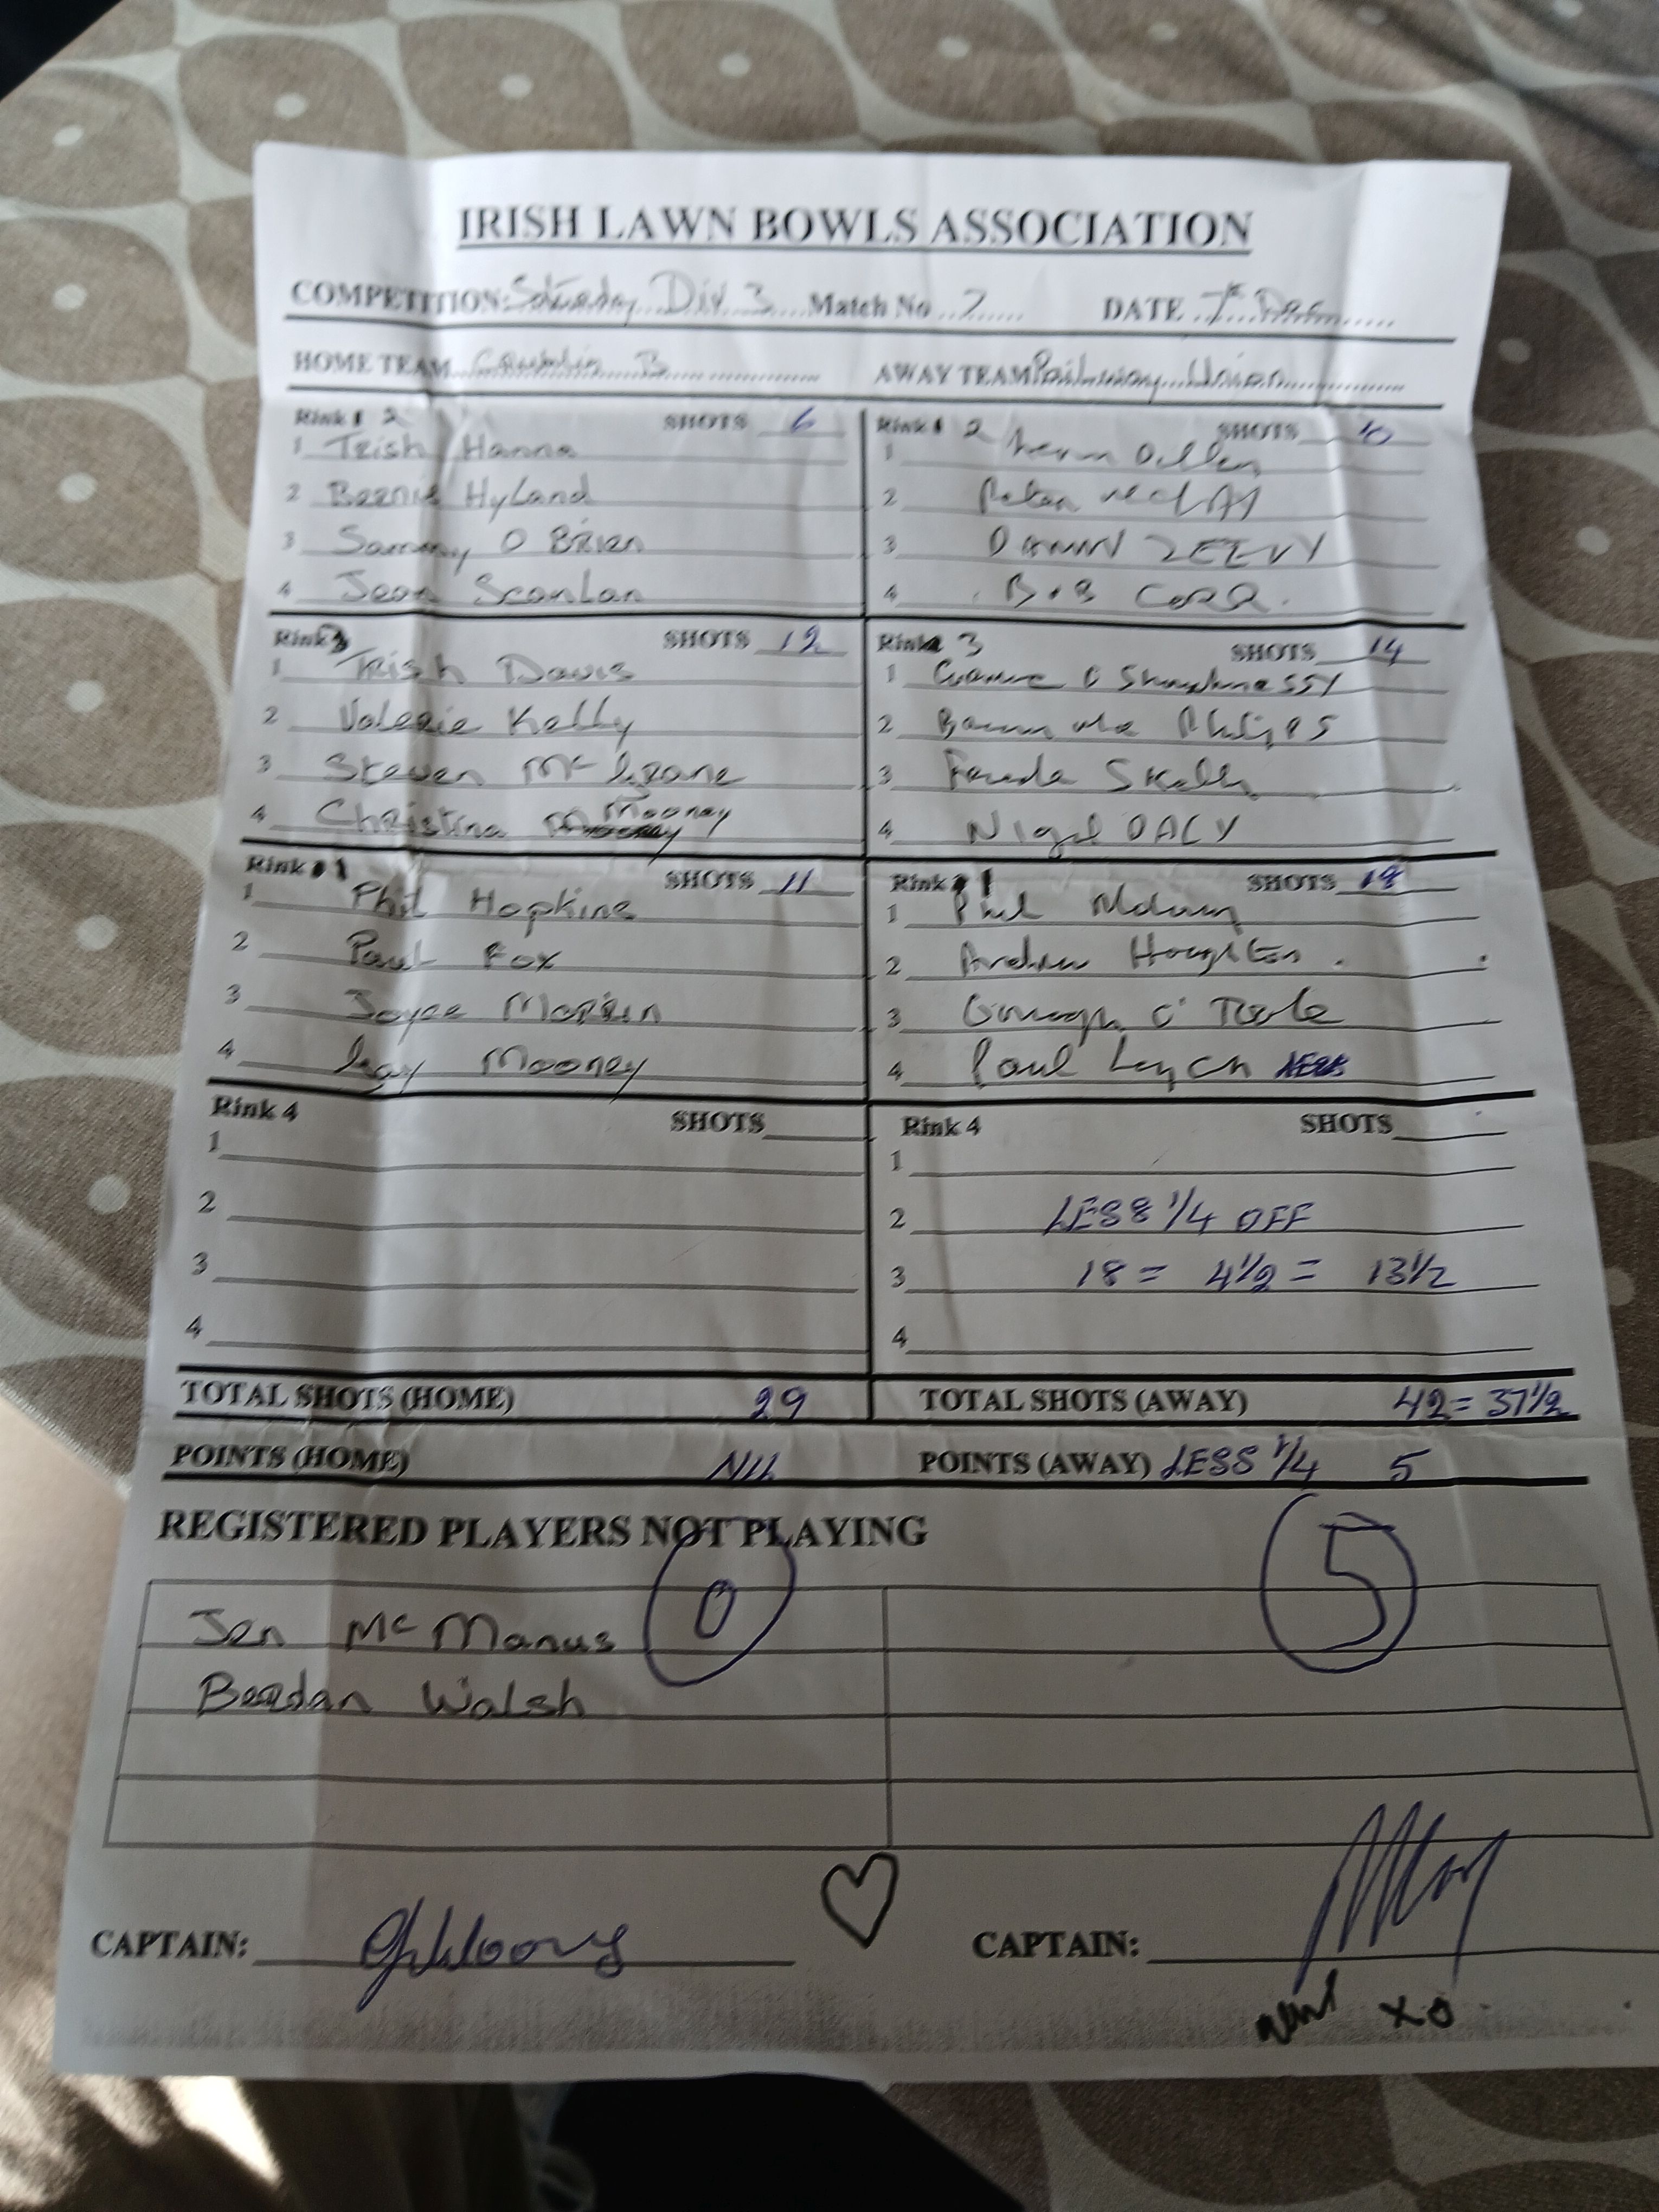 IRISH LAWN BOWLS ASSOCIATION
COMPETITION: Saturday Div 3 Match No 7 DATE 7th Dec
HOME TEAM B AWAY TEAM Railway Union
Rink 2 SHOTS 6
1 Trish Hanna
2 Bernie Hyland
3 Sammy O Brien
4 Jean Scanlan
Rink 2 SHOTS 10
1
2 Peter
3
4 BOB CORR.
Rink 3 SHOTS 12
1 Trish Davis
2 Valerie Kelly
3 Steven Mc Grane
4 Christina Mooney
Rink 3 SHOTS 14
1 O Shaughnessy
2 Philips
3 Skelly
4 Nigel DALY
Rink 1 SHOTS 11
1 Phil Hopkins
2 Paul Fox
3 Joyce Martin
4 Gay Mooney
Rink 1 SHOTS 18
1 Phil
2 Andrew Houghton.
3 O'Toole
4 Paul Lynch LESS
Rink 4 SHOTS
1
2
3
4
Rink 4 SHOTS
1
2 LESS 1/4 OFF
3 18 = 4 1/2 = 13 1/2
4
TOTAL SHOTS (HOME) 29 TOTAL SHOTS (AWAY) 42 = 37 1/2
POINTS (HOME) NIL POINTS (AWAY) LESS 1/4 5
REGISTERED PLAYERS NOT PLAYING
0 5
Jen Mc Manus
Brendan Walsh
CAPTAIN: CAPTAIN:
xo